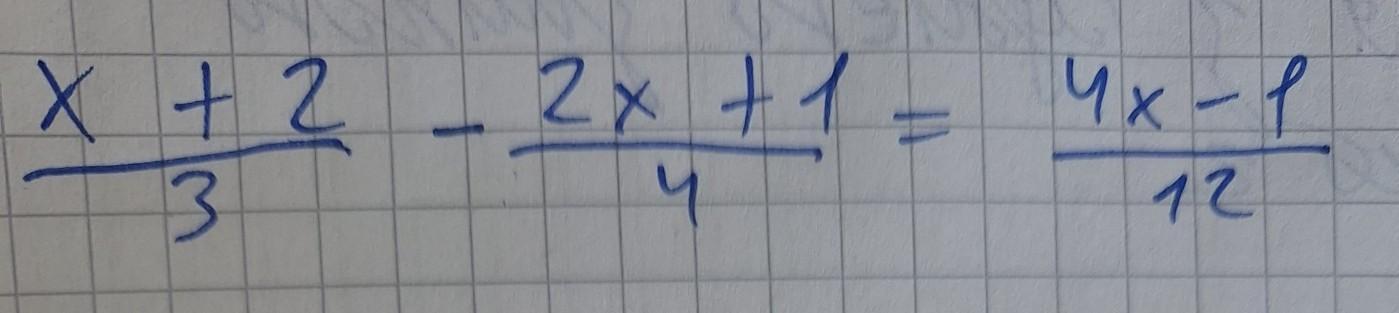 x + 2 / 3 - 2x + 1 / 4 = 4x - 1 / 12